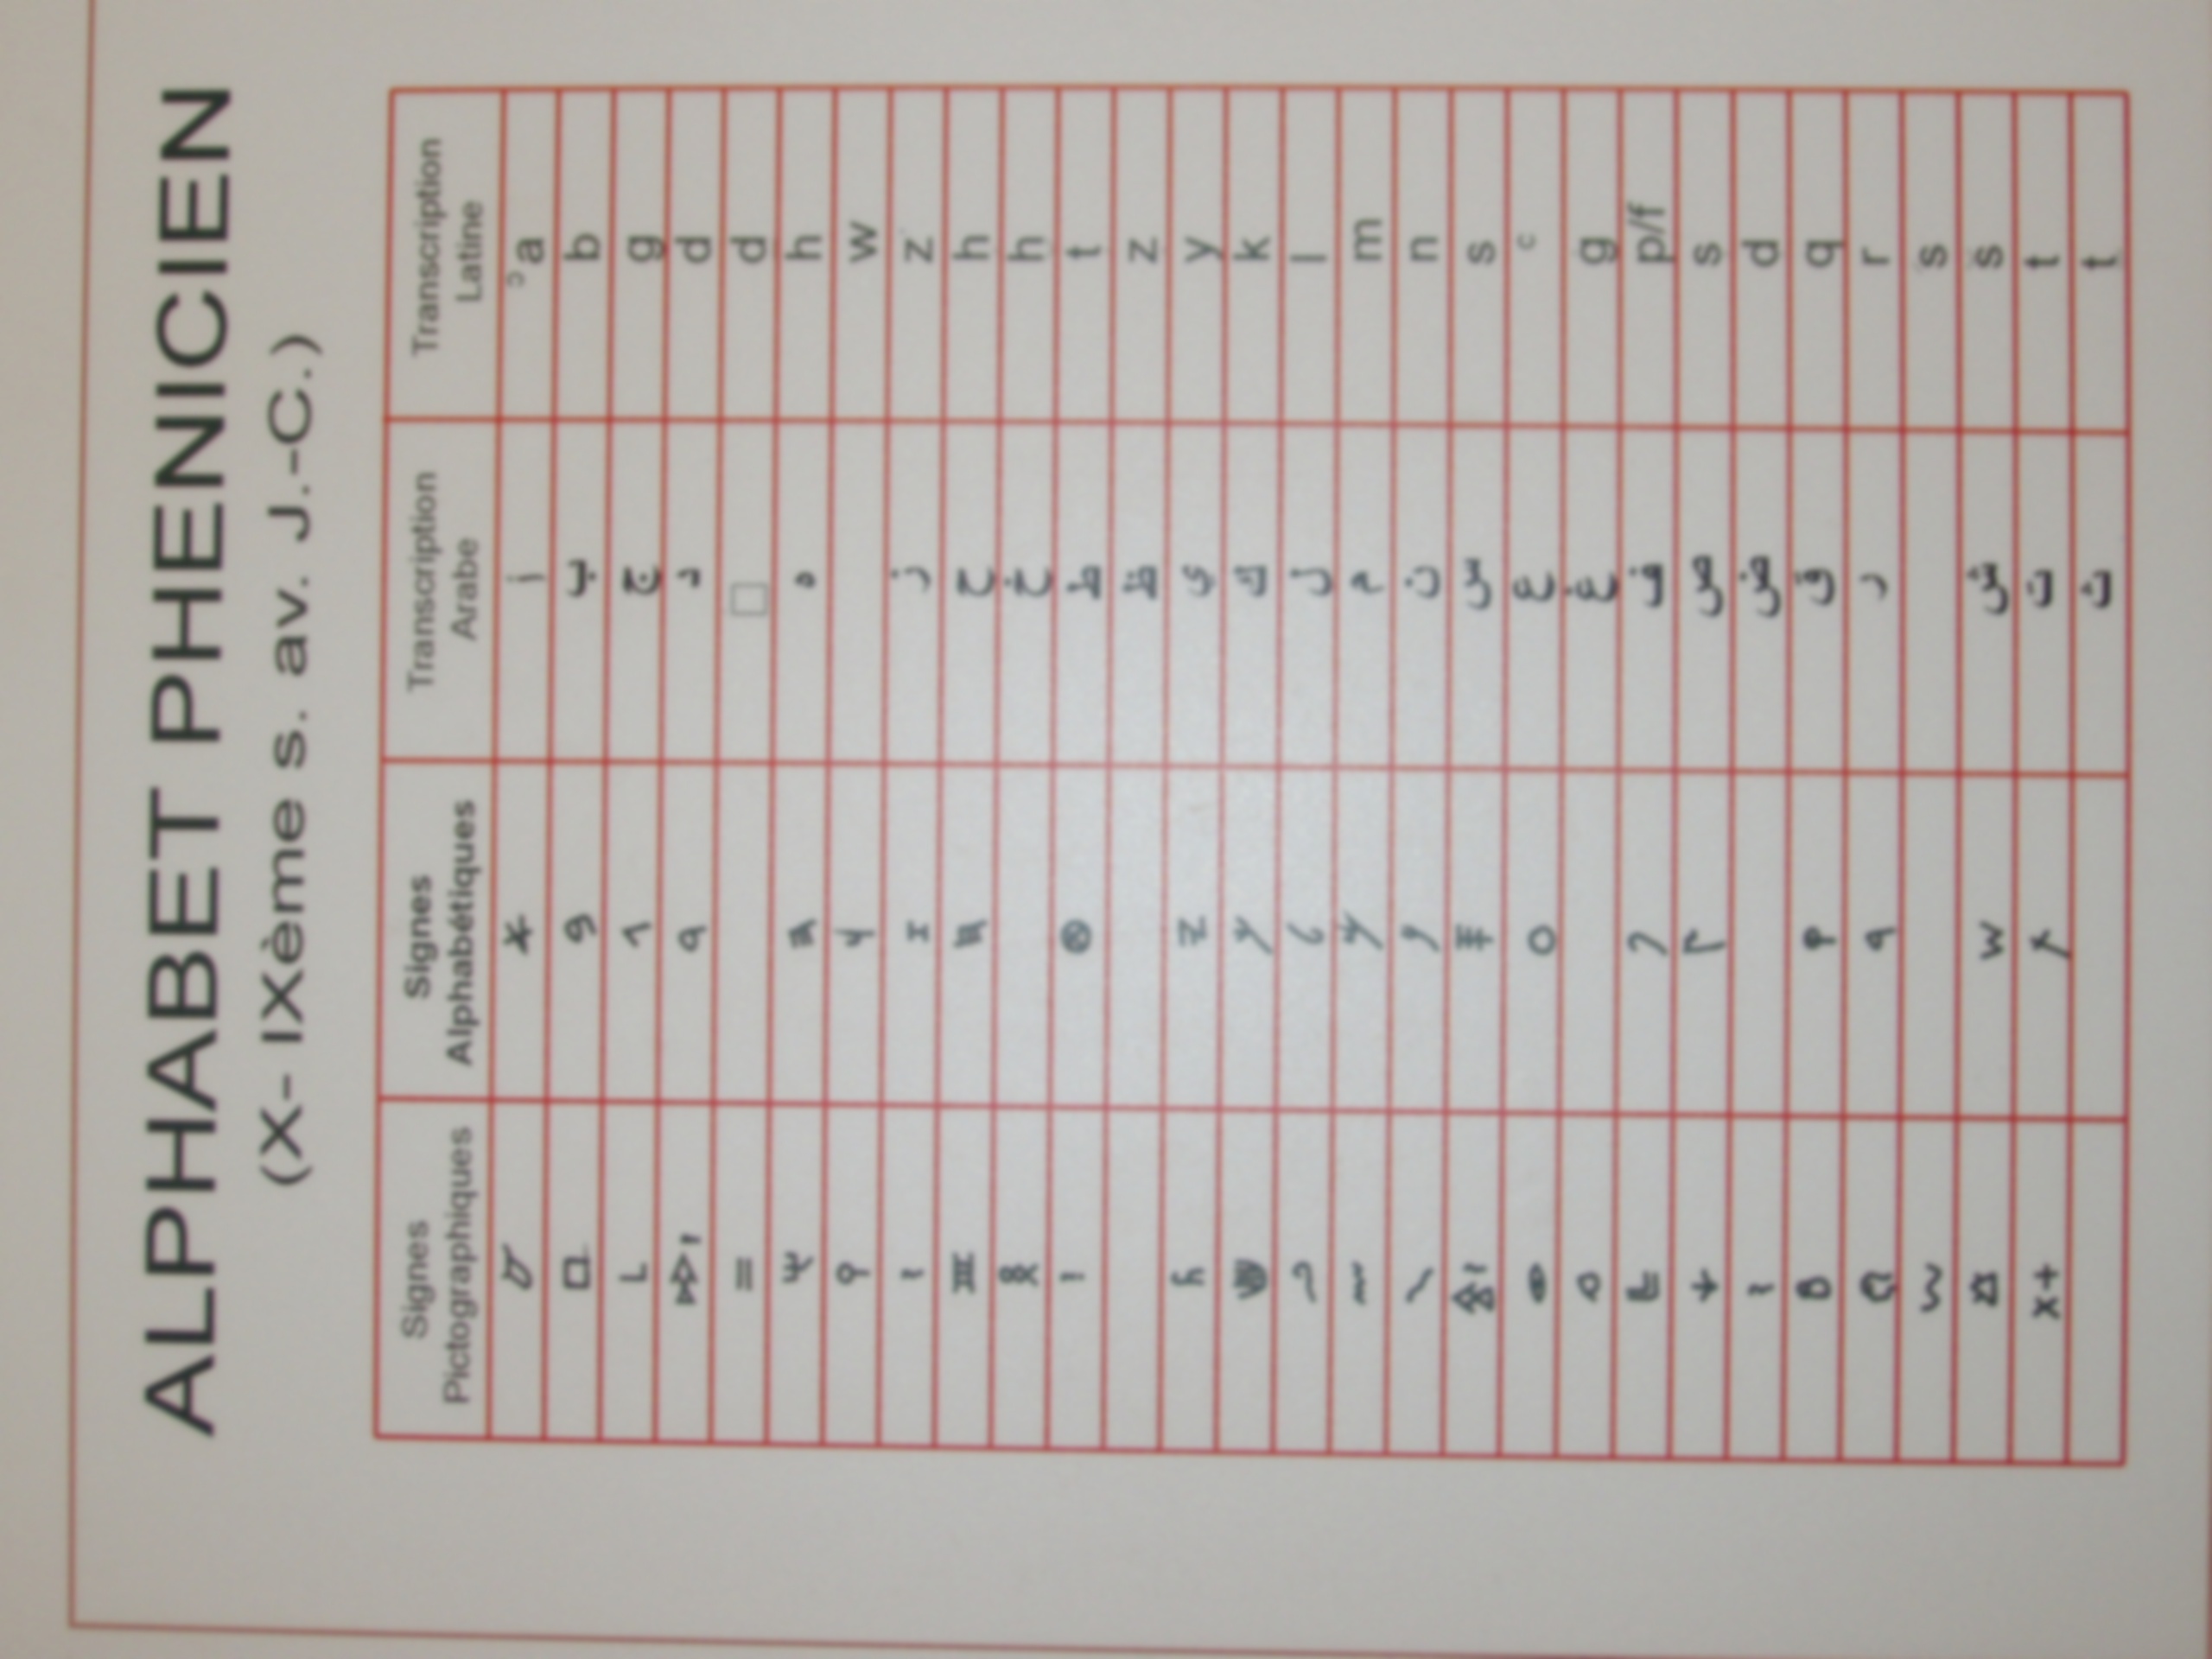 ALPHABET PHENICIEN
(X- IXème s. av. J.-C.)
Signes Pictographiques Signes Alphabétiques Transcription Arabe Transcription Latine
𐤀 ا ᵓa
𐤁 ب b
𐤂 ج g
𐤃 د d
d
𐤄 ه h
𐤅 w
𐤆 ز z
𐤇 ح h
خ h
𐤈 ط t
ظ z
𐤉 ي y
𐤊 ك k
𐤋 ل l
𐤌 م m
𐤍 ن n
𐤎 س s
𐤏 ع ᶜ
غ g
𐤐 ف p/f
𐤑 ص s
ض d
𐤒 ق q
𐤓 ر r
s
𐤔 ش s
𐤕 ت t
ث t